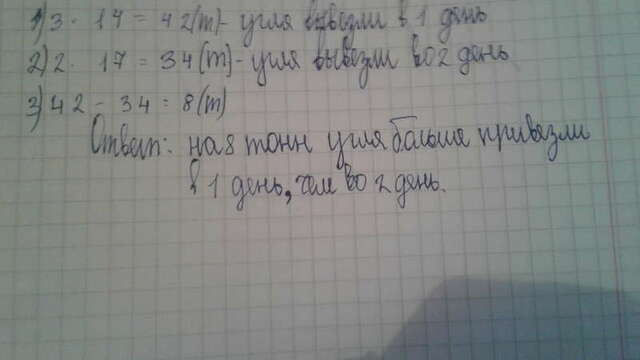 1) 3 · 14 = 42 (т) - угля вывезли в 1 день
2) 2 · 17 = 34 (т) - угля вывезли во 2 день
3) 42 - 34 = 8 (т)
Ответ: на 8 тонн угля больше привезли
в 1 день, чем во 2 день.